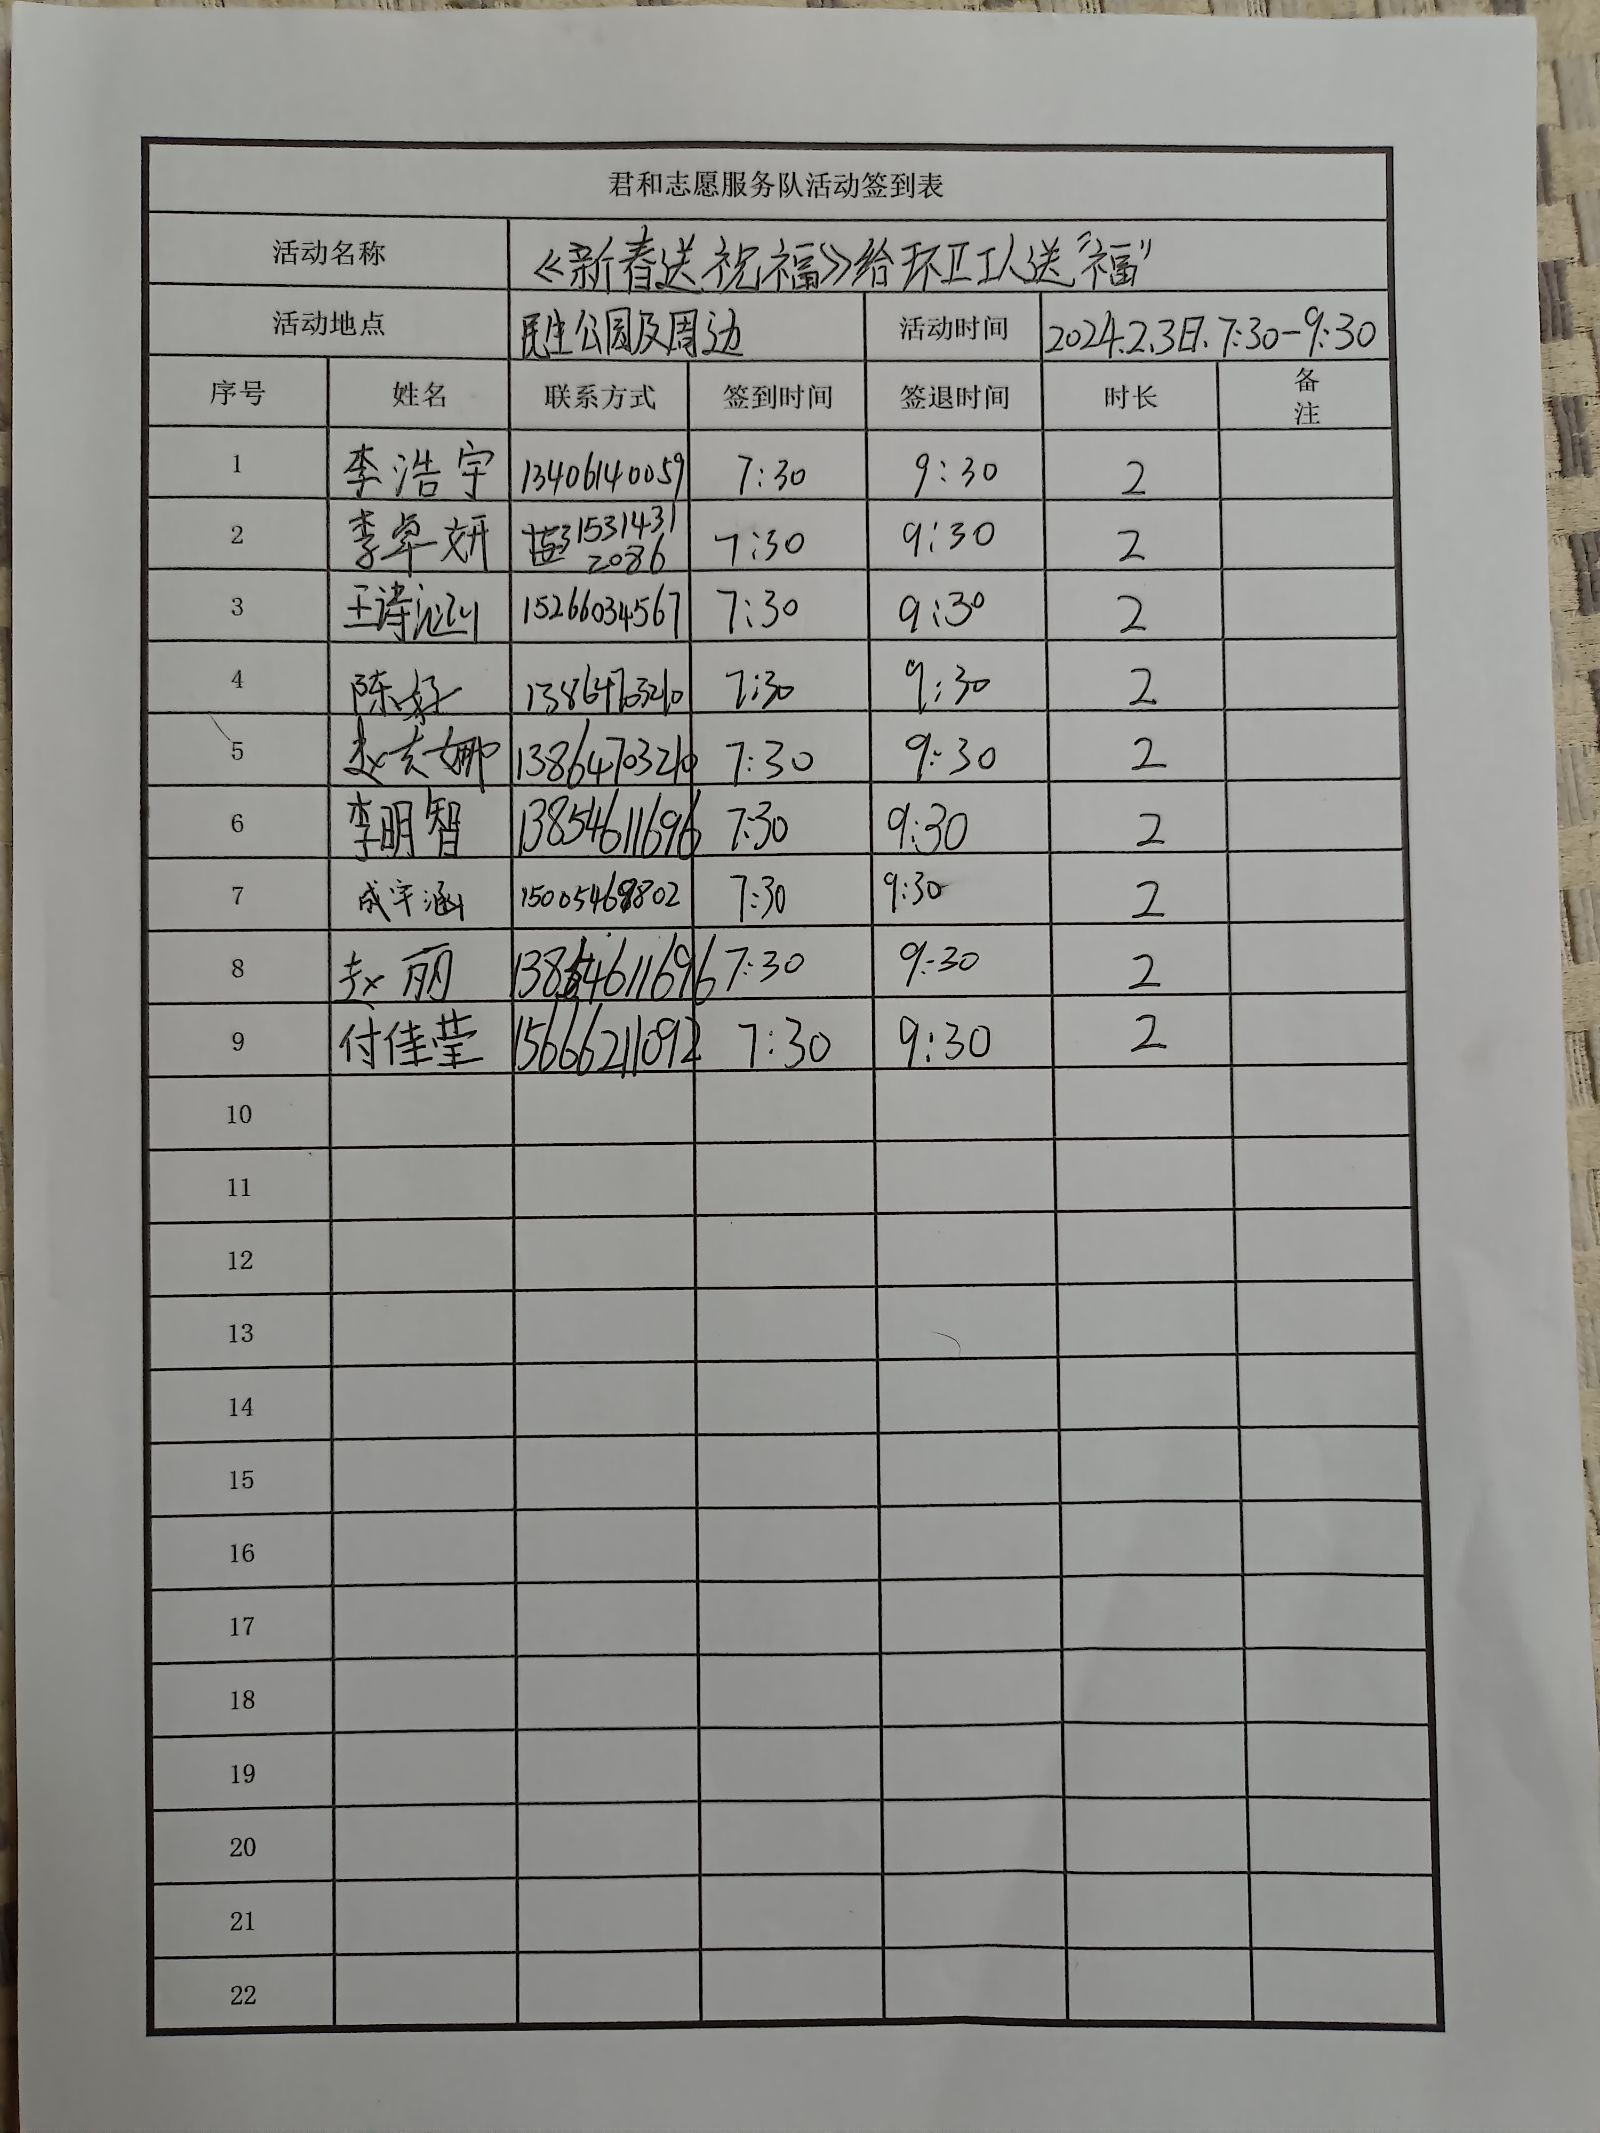 君和志愿服务队活动签到表
活动名称 《新春送祝福》给环卫工人送“福”
活动地点 民生公园及周边 活动时间 2024.2.3日.7:30-9:30
序号 姓名 联系方式 签到时间 签退时间 时长 备注
1 李浩宇 13406140059 7:30 9:30 2
2 李卓妍 15314312086 7:30 9:30 2
3 王诗涵 15266034567 7:30 9:30 2
4 陈好 13864703210 7:30 9:30 2
5 赵云娜 13864703210 7:30 9:30 2
6 李明智 13854611696 7:30 9:30 2
7 成宇涵 15005468802 7:30 9:30 2
8 赵丽 13854611696 7:30 9:30 2
9 付佳莹 15666211092 7:30 9:30 2
10
11
12
13
14
15
16
17
18
19
20
21
22